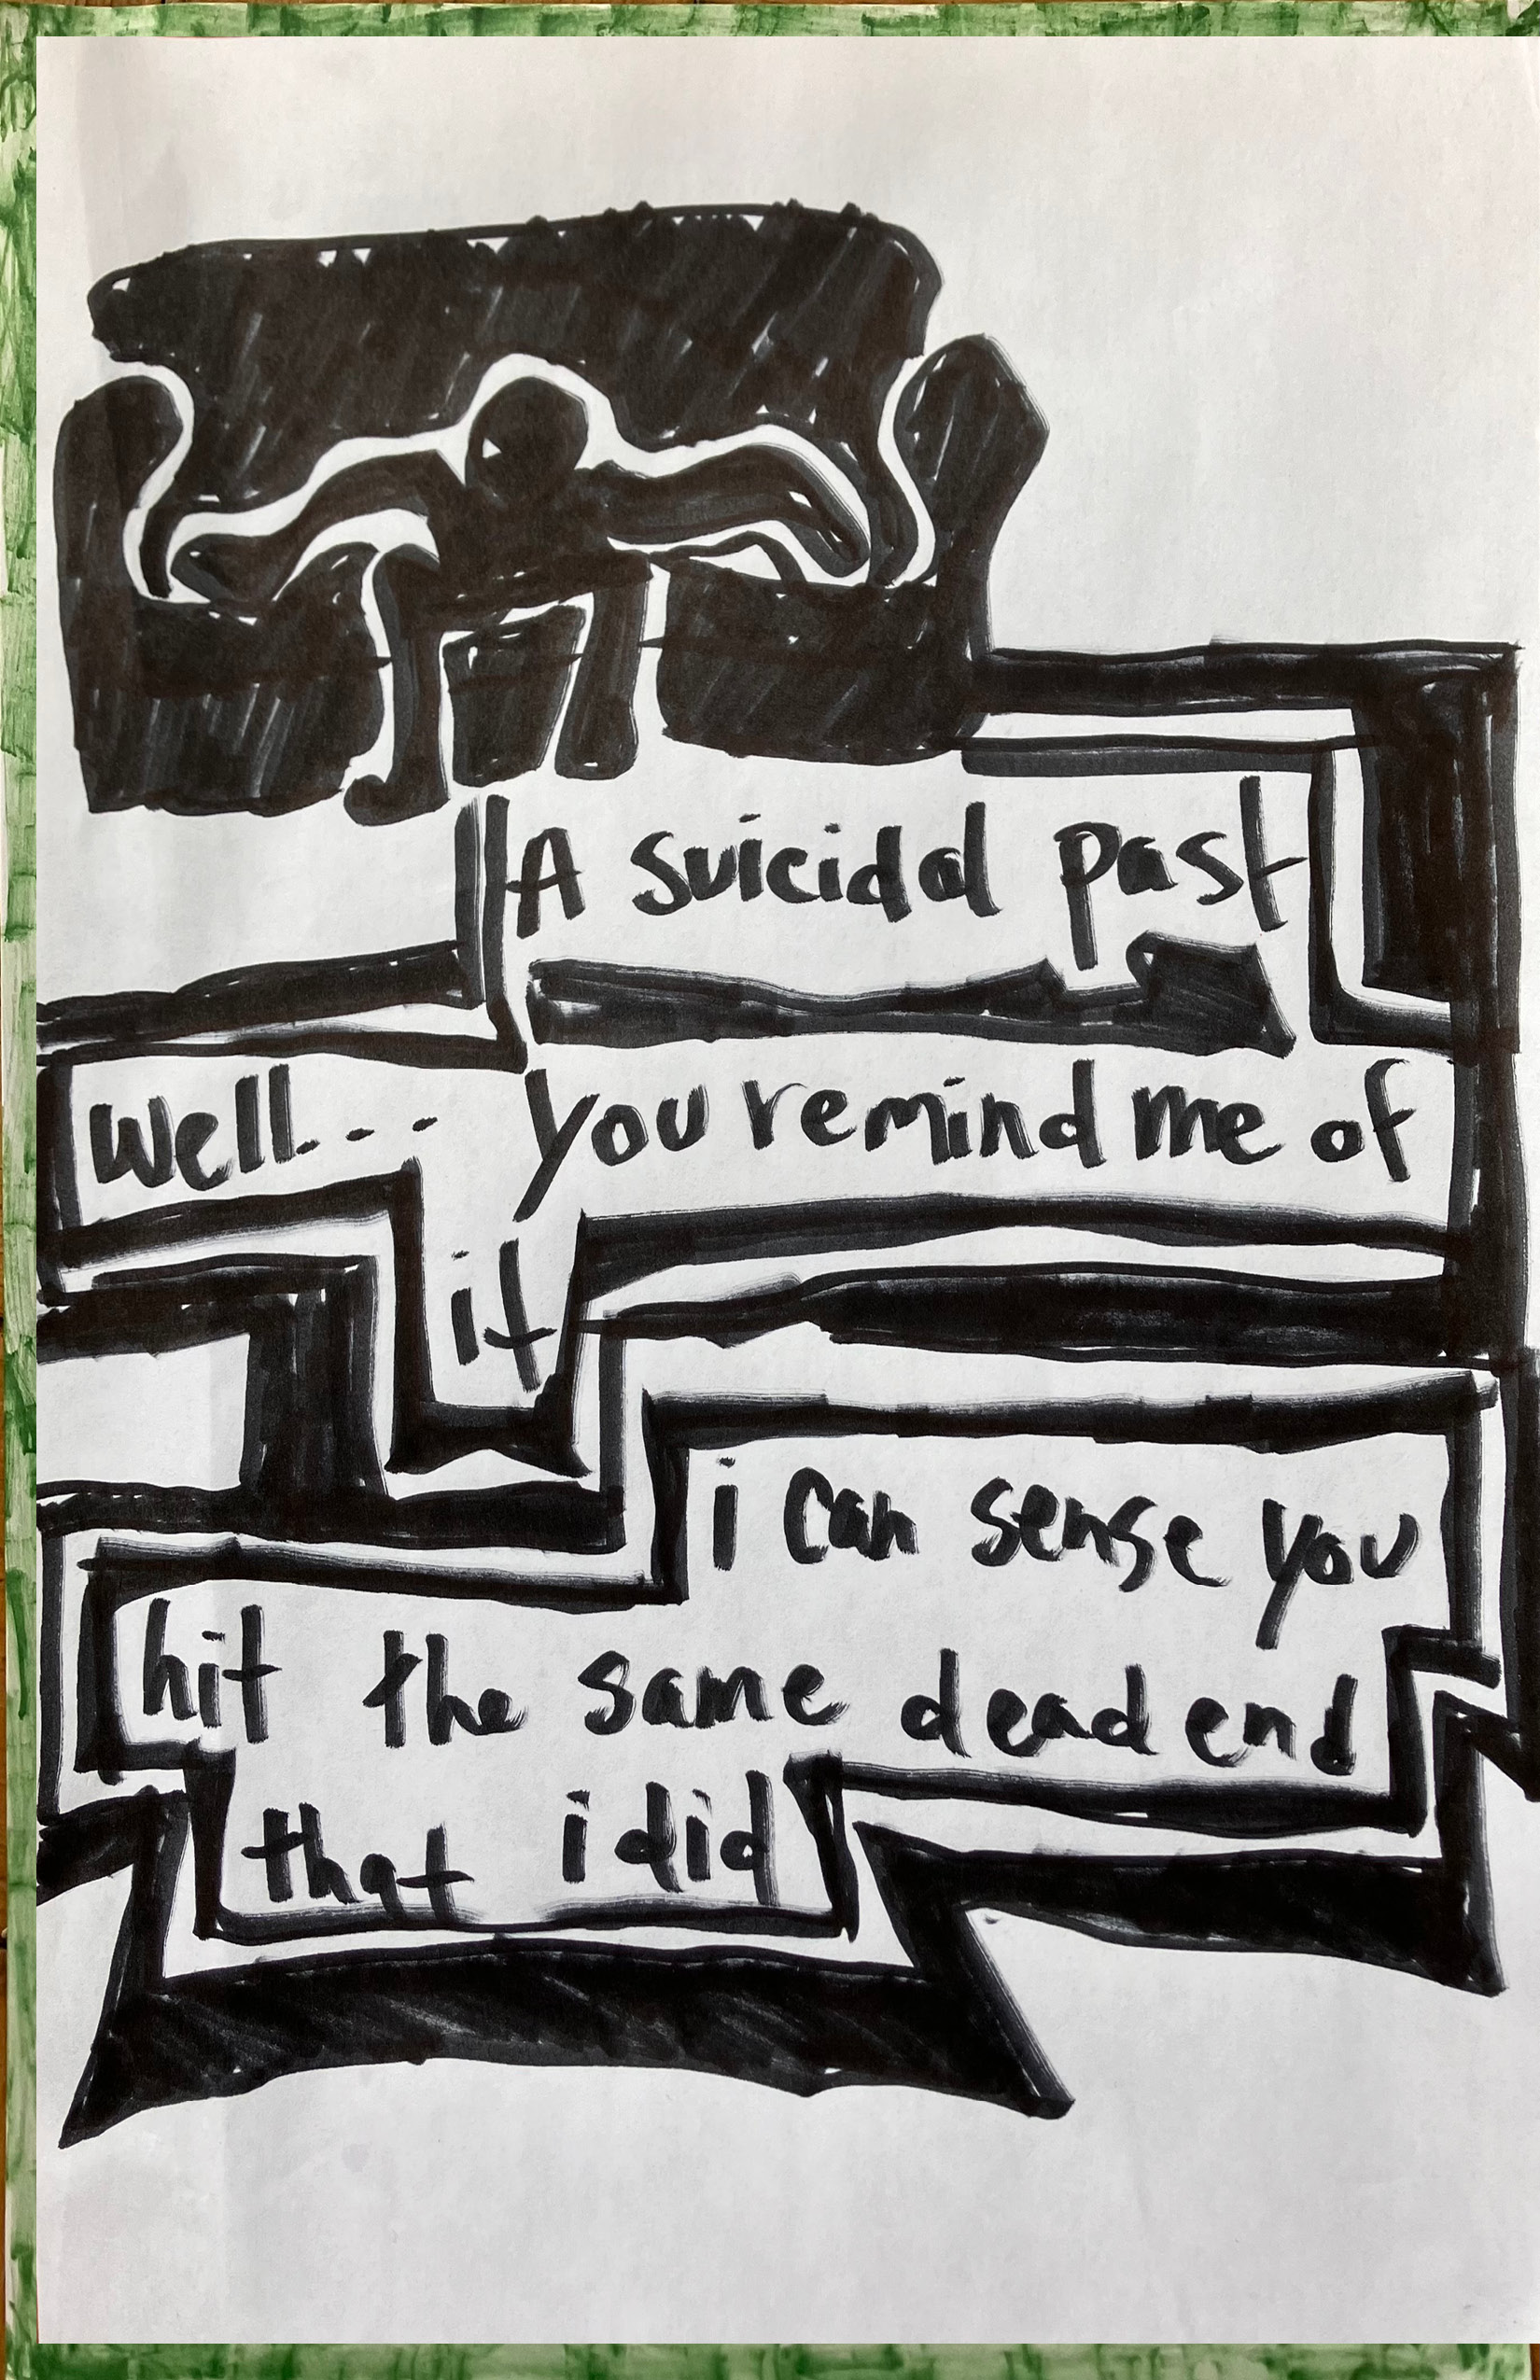 A suicidal past
Well... you remind me of
it
i can sense you
hit the same dead end
that i did